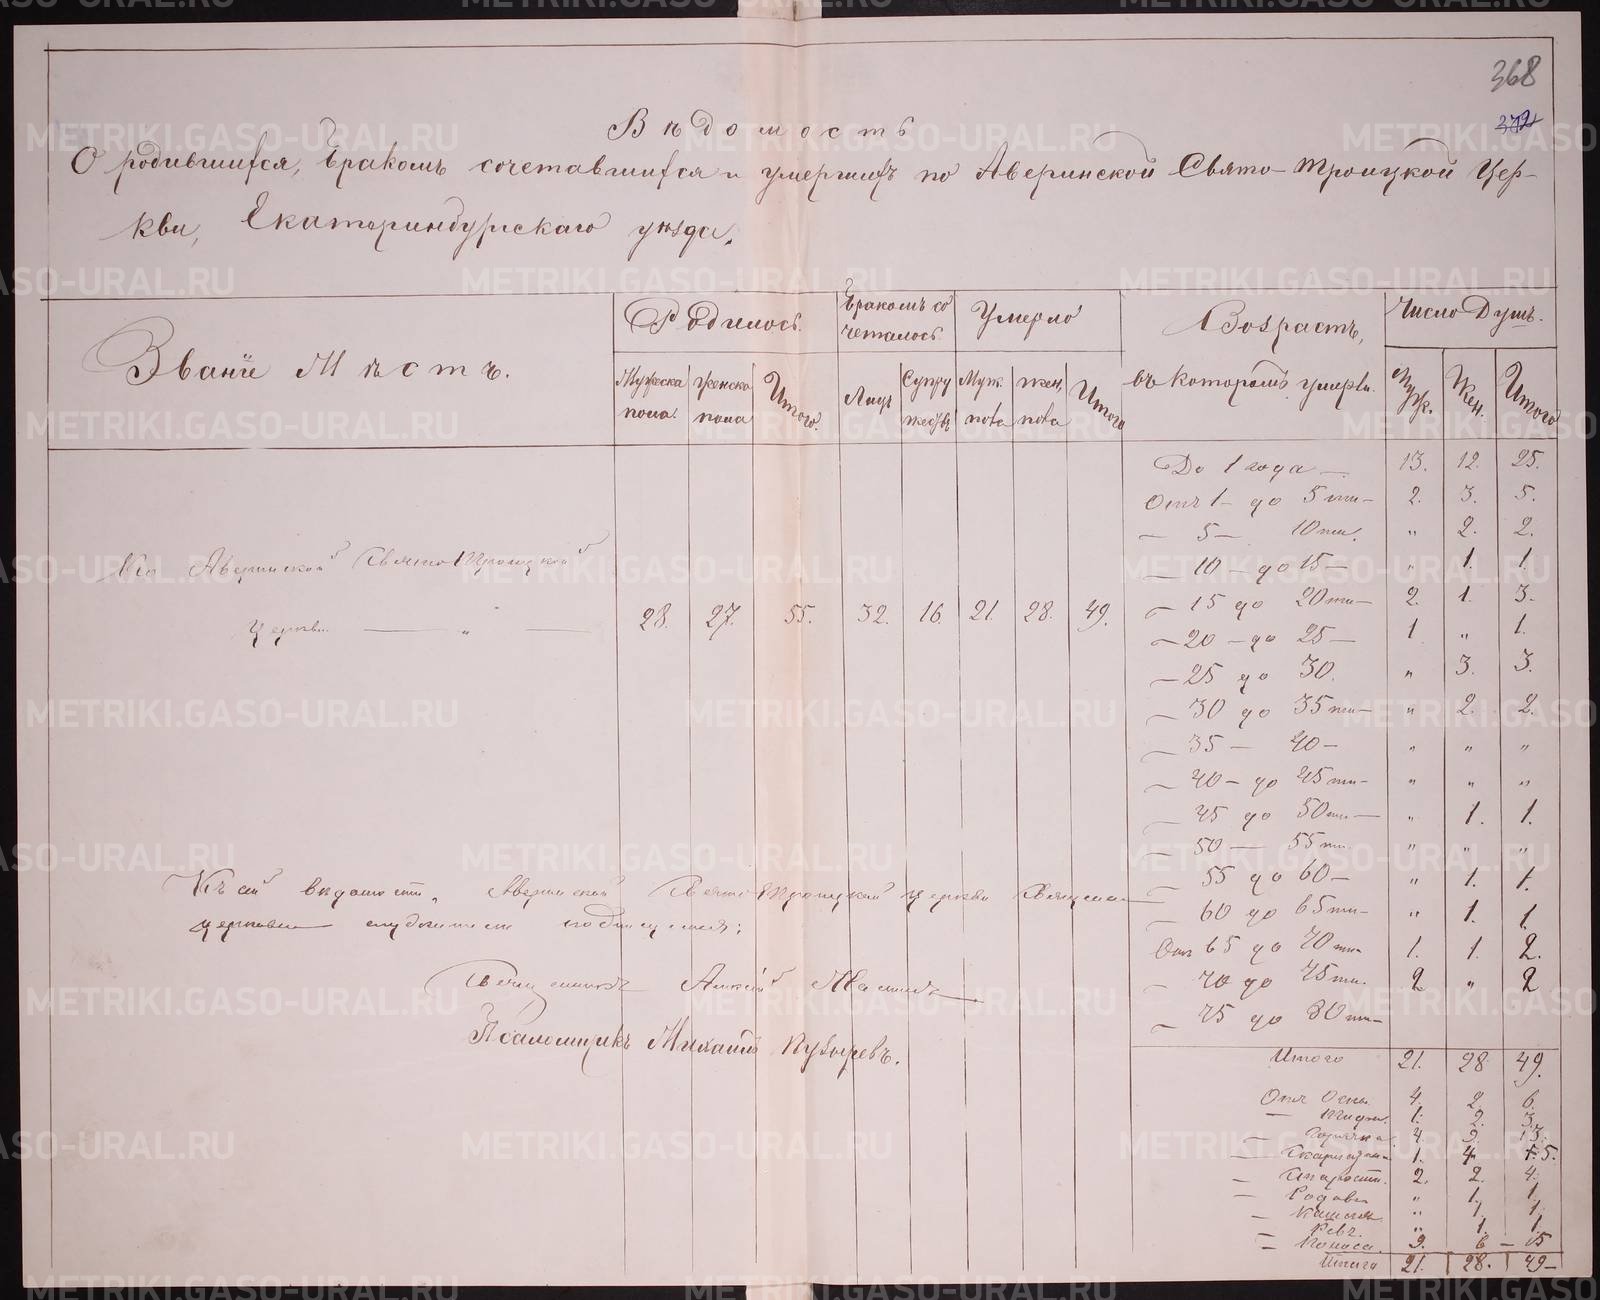 368
372
Вѣдомость
О родившихся, бракомъ сочетавшихся и умершихъ по Аверинской Свято-Троицкой Цер-
кви, Екатеринбургскаго уѣзда.
Званіе Мѣстъ. Родилось. Бракомъ со четалось. Умерло Возрастъ, въ которомъ умерли. Число Душъ.
Мужеска пола. Женска пола Итого. Лицъ Супру жествъ Муж. пола Жен. пола Итого Муж. Жен. Итого
До 1 года — 13. 12. 25.
Отъ 1 – до 5 ти – 2. 3. 5.
— 5 – 10 ти. " 2. 2.
— 10 – до 15 — " 1. 1.
По Аверинской Свято Троицкой
— 15 до 20 ти – 2. 1. 3.
церкви — " — 28. 27. 55. 32. 16. 21. 28. 49.
— 20 – до 25 — 1 " 1.
— 25 до 30. " 3. 3.
— 30 до 35 ти – " 2. 2.
— 35 — 40 – " " "
— 40 – до 45 ти – " " "
— 45 до 50 ти — " 1. 1.
— 50 — 55 ти. " " "
— 55 до 60 – " 1. 1.
— 60 до 65 ти – " 1. 1.
Отъ 65 до 70 ти 1. 1. 2.
— 70 до 75 ти. 2. " 2
— 75 до 80 ти –
Итого 21. 28 49.
Къ сей вѣдомости, Аверинской Свято Троицкой церкви Священно
церковно служители подписуемся:
Священникъ
Псаломщикъ Михаилъ Пузыревъ.
Отъ Оспы. 4. 2. 6.
— 1. 2. 3.
— Горячка. 4. 9. 13.
— Скарлатин 1. 4 5.
— Старости. 2. 2. 4.
— Родовъ " 1. 1.
— Кашля " 1. 1.
— " 1. 1.
— Поноса. 9. 6 – 15
Итого 21. 28. 49 –
METRIKI.GASO-URAL.RU